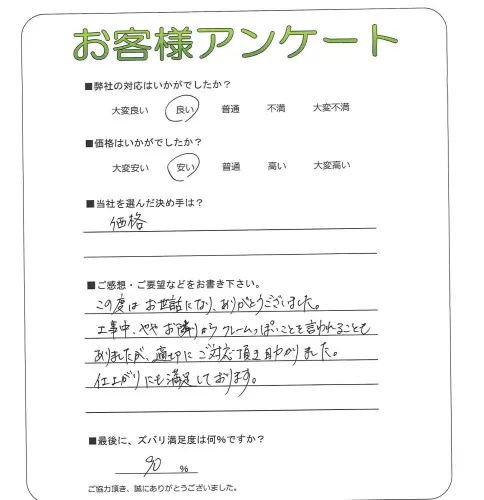 お客様アンケート
■弊社の対応はいかがでしたか？
大変良い 良い 普通 不満 大変不満
■価格はいかがでしたか？
大変安い 安い 普通 高い 大変高い
■当社を選んだ決め手は？
価格
■ご感想・ご要望などをお書き下さい。
この度はお世話になり、ありがとうございました。
工事中、ややお隣りからクレームっぽいことを言われることも
ありましたが、適切にご対応頂き助かりました。
仕上がりにも満足しております。
■最後に、ズバリ満足度は何％ですか？
90 ％
ご協力頂き、誠にありがとうございました。